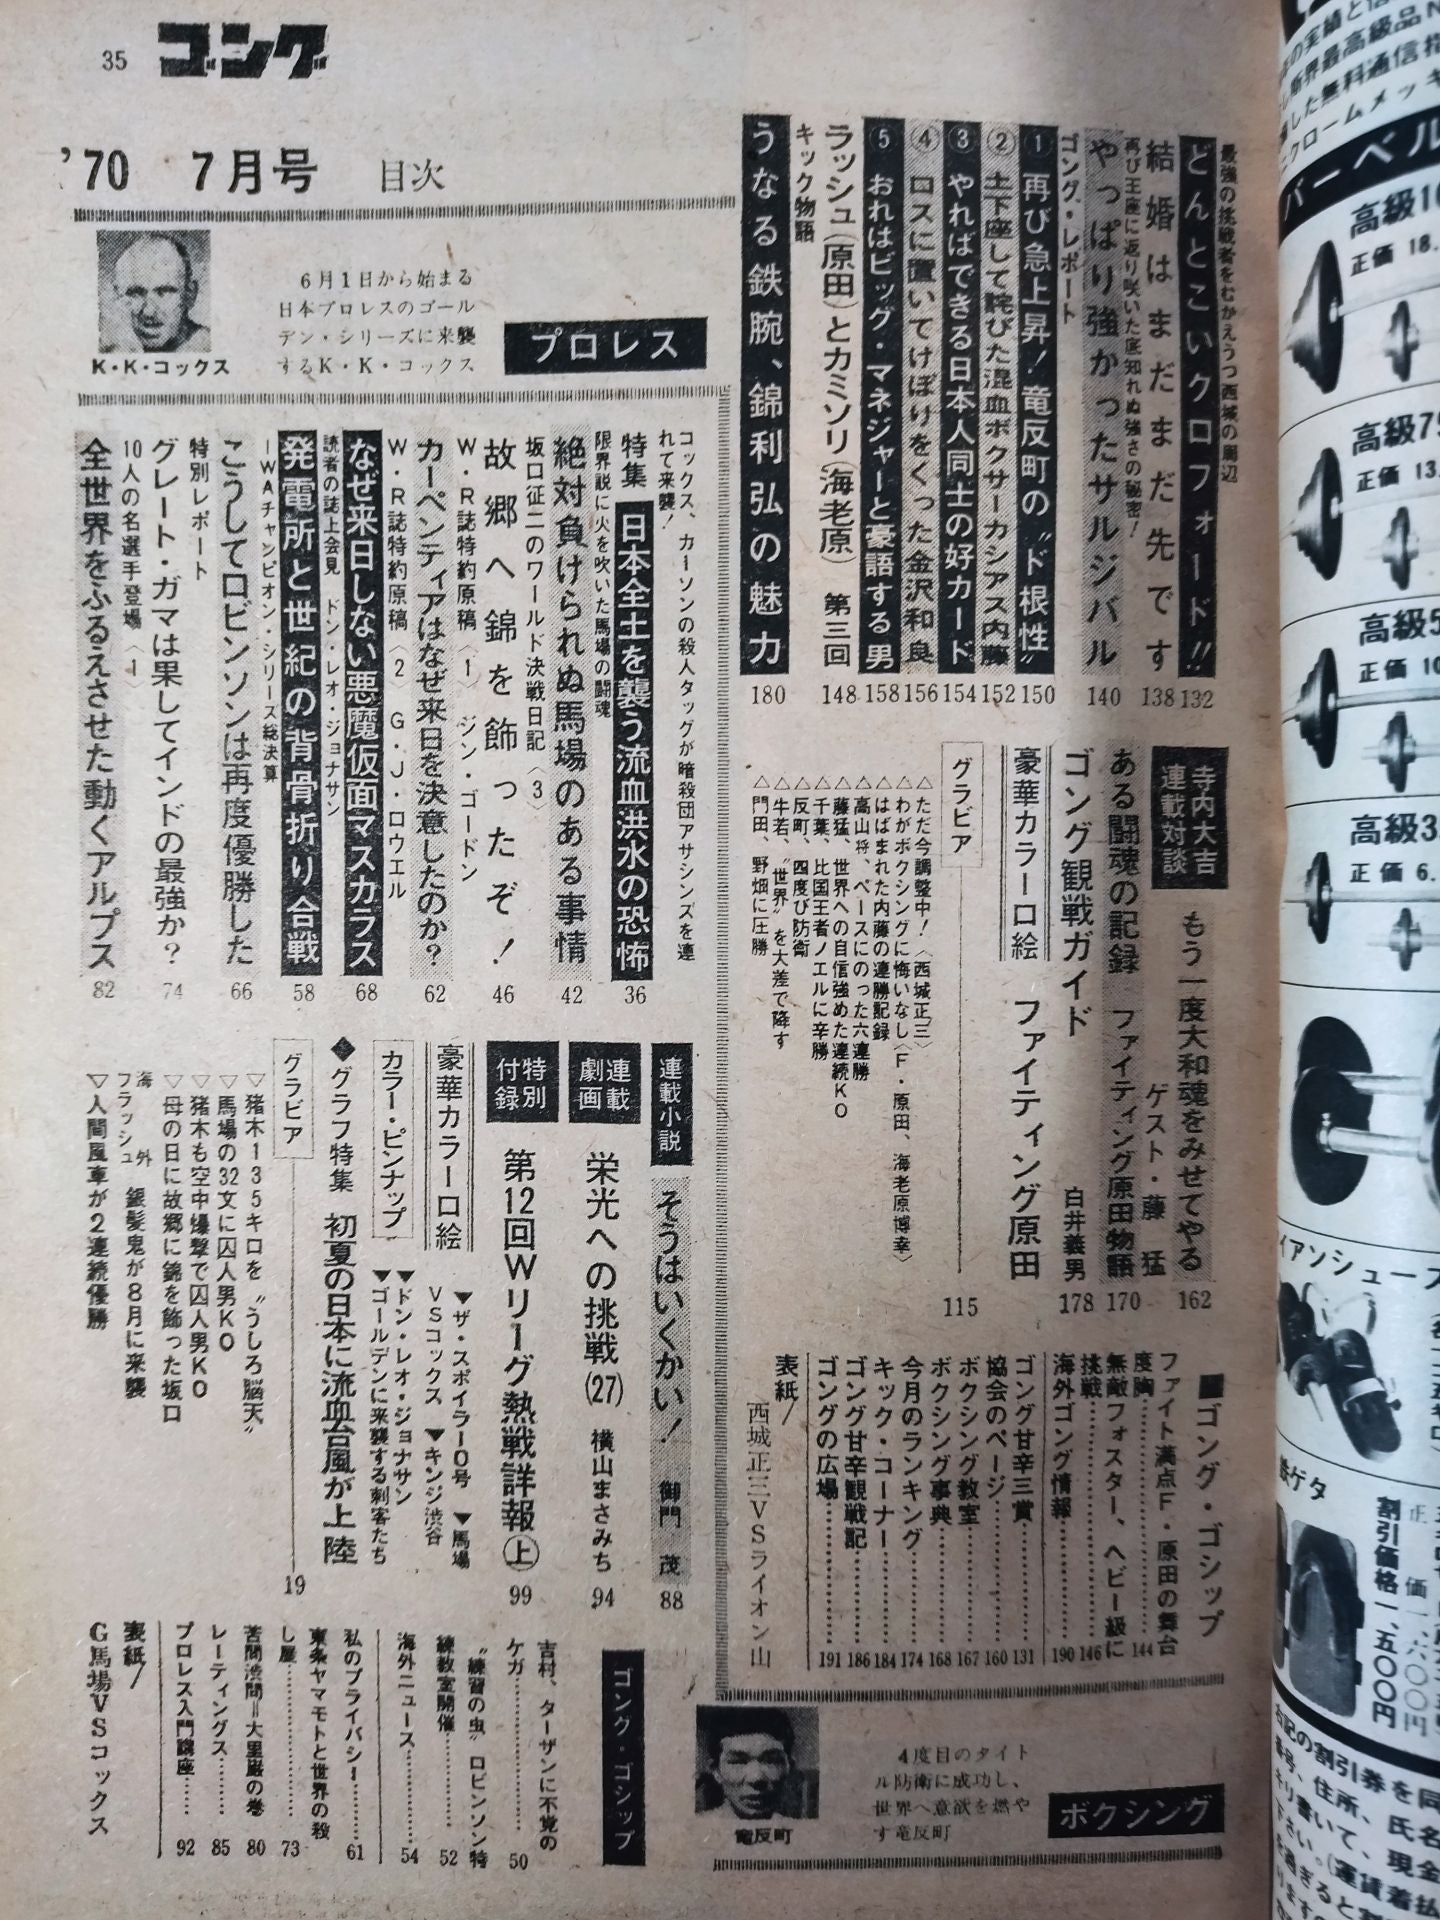 35
ゴング
'70 7月号 目次
K・K・コックス
6月1日から始まる
日本プロレスのゴール
デン・シリーズに来襲
するK・K・コックス
プロレス
コックス、カーソンの殺人タッグが暗殺団アサシンズを連
れて来襲!
特集 日本全土を襲う流血洪水の恐怖 36
限界説に火を吹いた馬場の闘魂
絶対負けられぬ馬場のある事情 42
坂口征二のワールド決戦日記〈3〉
故郷へ錦を飾ったぞ! 46
W・R誌特約原稿〈1〉 ジン・ゴードン
カーペンティアはなぜ来日を決意したのか? 62
W・R誌特約原稿〈2〉 G・J・ロウエル
なぜ来日しない悪魔仮面マスカラス 68
読者の誌上会見 ドン・レオ・ジョナサン
発電所と世紀の背骨折り合戦 58
IWAチャンピオン・シリーズ総決算
こうしてロビンソンは再度優勝した 66
特別レポート
グレート・ガマは果してインドの最強か? 74
10人の名選手登場〈1〉
全世界をふるえさせた動くアルプス 82
連載小説 そうはいくかい! 御門 茂 88
連載劇画 栄光への挑戦(27) 横山まさみち 94
特別付録 第12回Wリーグ熱戦詳報㊤ 99
豪華カラー口絵
▼ザ・スポイラー0号 ▼馬場
VSコックス ▼キンジ渋谷
カラー・ピンナップ
▼ドン・レオ・ジョナサン
▼ゴールデンに来襲する刺客たち
◆グラフ特集 初夏の日本に流血台風が上陸
グラビア 19
▽猪木135キロを〝うしろ脳天〟
▽馬場の32文に囚人男KO
▽猪木も空中爆撃で囚人男KO
▽母の日に故郷に錦を飾った坂口
海外フラッシュ 銀髪鬼が8月に来襲
▽人間風車が2連続優勝
ゴング・ゴシップ
吉村、ターザンに不覚の
ケガ……50
〝練習の虫〟ロビンソン特
練教室開催……52
海外ニュース……54
私のプライバシー……61
東条ヤマモトと世界の殺
し屋……73
苦問渋問=大里巌の巻 80
レーティングス……85
プロレス入門講座……92
表紙/
G馬場VSコックス
最強の挑戦者をむかえうつ西城の周辺
どんとこいクロフォード!! 132
結婚はまだまだ先です 138
再び王座に返り咲いた底知れぬ強さの秘密!
やっぱり強かったサルジバル 140
ゴング・レポート
①再び急上昇!竜反町の〝ド根性〟 150
②土下座して詫びた混血ボクサーカシアス内藤 152
③やればできる日本人同士の好カード 154
④ロスに置いてけぼりをくった金沢和良 156
⑤おれはビッグ・マネジャーと豪語する男 158
ラッシュ(原田)とカミソリ(海老原) 第三回 148
キック物語
うなる鉄腕、錦利弘の魅力 180
寺内大吉連載対談 もう一度大和魂をみせてやる 162
ゲスト・藤 猛
ある闘魂の記録 ファイティング原田物語 170
ゴング観戦ガイド 白井義男 178
豪華カラー口絵 ファイティング原田
グラビア 115
△ただ今調整中!〈西城正三〉
△わがボクシングに悔いなし〈F・原田、海老原博幸〉
△はばまれた内藤の連勝記録
△高山将、ペースにのった六連勝
△藤猛、世界への自信強めた連続KO
△千葉、比国王者ノエルに辛勝
△反町、四度び防衛
△牛若、〝世界〟を大差で降す
△門田、野畑に圧勝
■ゴング・ゴシップ
ファイト満点F・原田の舞台
度胸……144
無敵フォスター、ヘビー級に
挑戦……146
海外ゴング情報……190
ゴング甘辛三賞……131
協会のページ……160
ボクシング教室……167
ボクシング事典……168
今月のランキング……174
キック・コーナー……184
ゴング甘辛観戦記……186
ゴングの広場……191
表紙/
西城正三VSライオン山
竜反町
4度目のタイト
ル防衛に成功し、
世界へ意欲を燃や
す竜反町
ボクシング
バーベル
高級10
正価 18.
高級75
正価 13.
高級5
正価 10
高級3
正価 6.
イアンシューズ
鉄ゲタ
正価一、六〇〇円
割引価格一、五〇〇円
右記の割引券を同